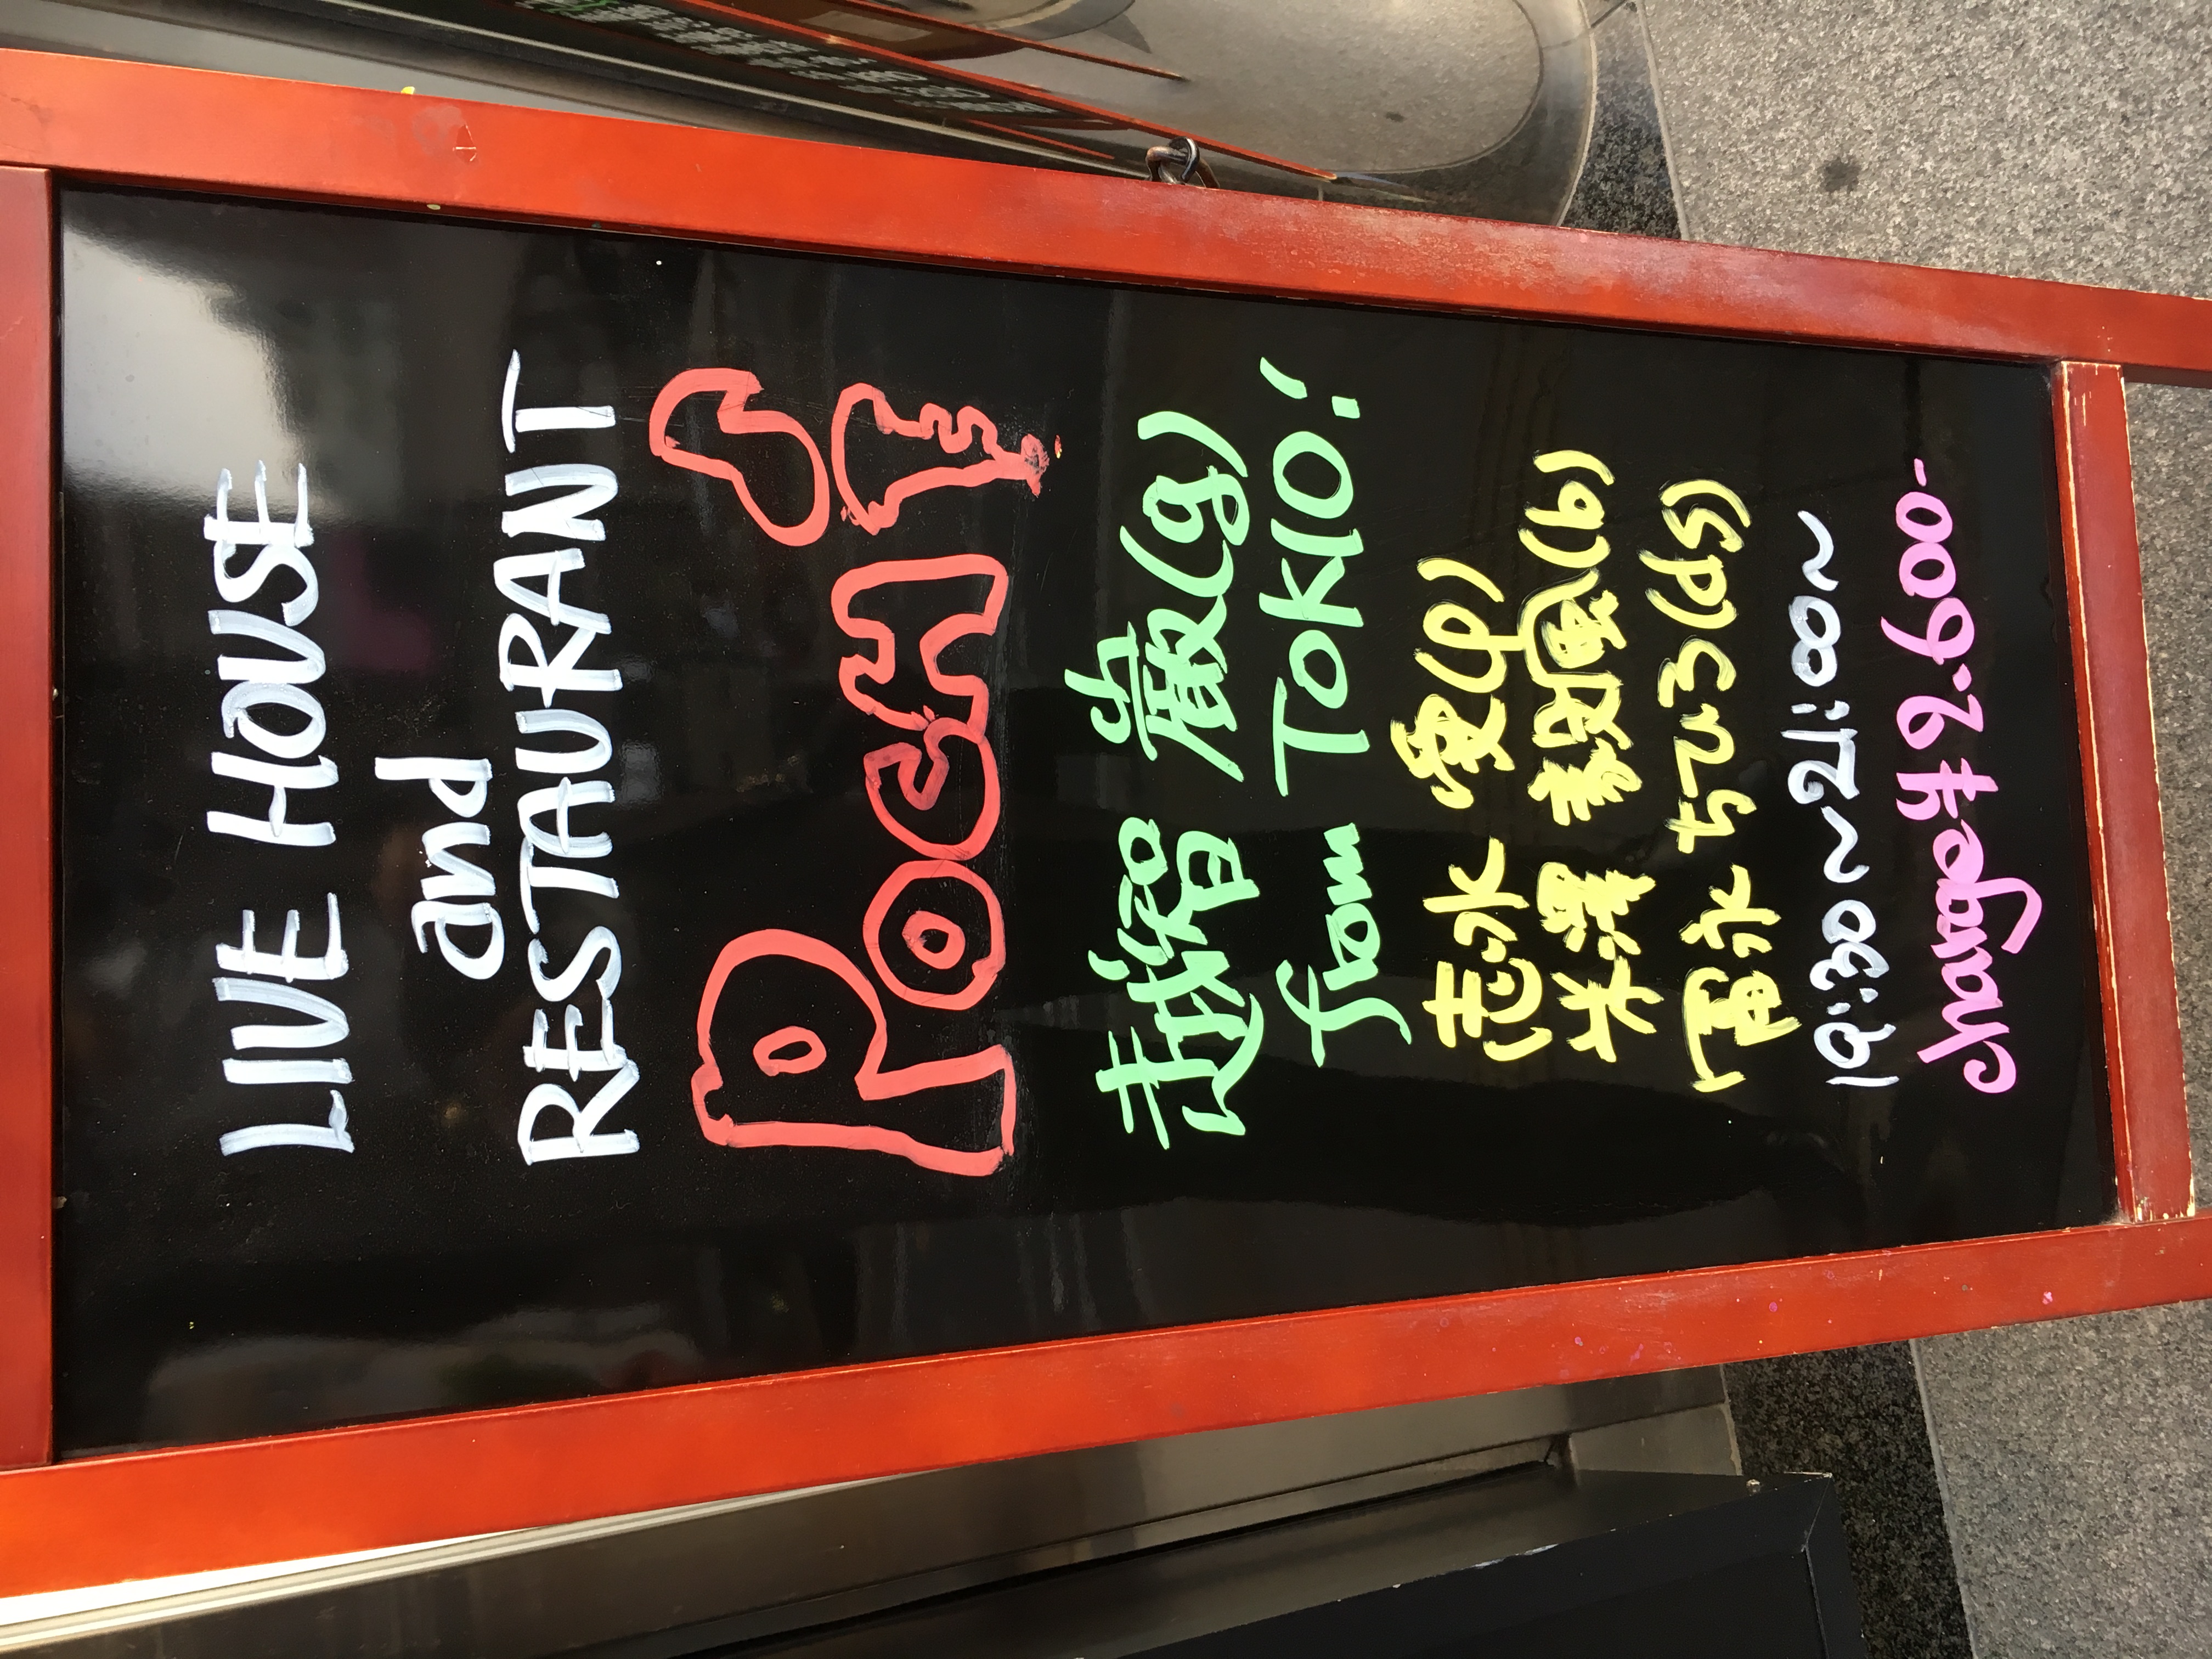 LIVE HOUSE
and
RESTAURANT
越智 巌(g)
from TOKIO!
志水 愛(p)
米澤 (b)
富永 ちひろ(ds)
19:30~21:00~
charge¥2.600-